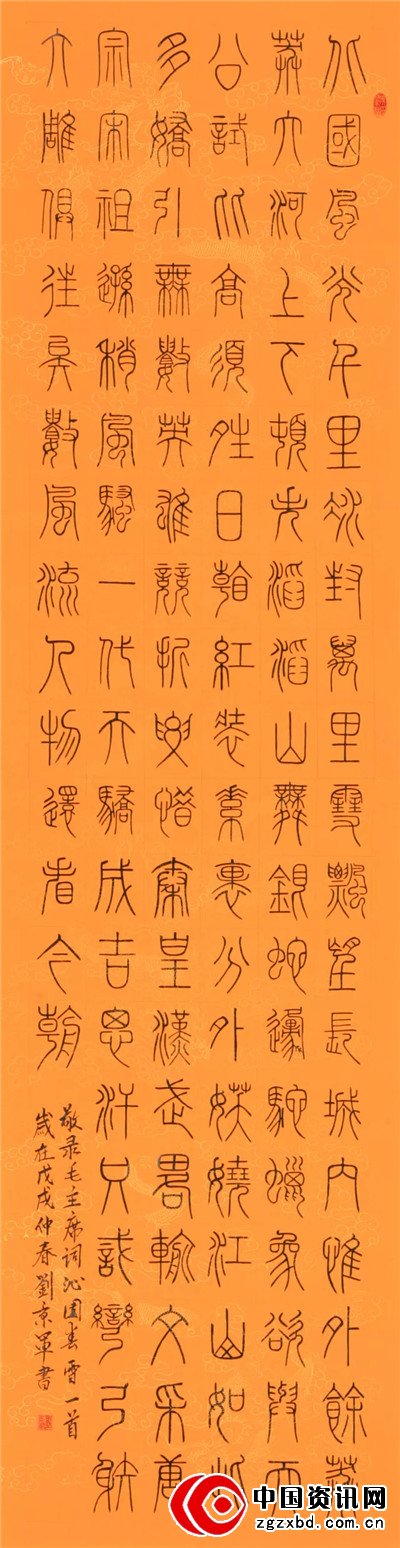 北國風光千里冰封萬里雪飄望長城內惟外餘莽
莽大河上下頓失滔滔山舞銀蛇原馳蠟象欲與天
公試比高須晴日看紅裝素裹分外妖嬈江山如此
多嬌引無數英雄競折腰惜秦皇漢武略輸文采唐
宗宋祖遜稍風騷一代天驕成吉思汗只識彎弓射
大雕俱往矣數風流人物還看今朝
敬录毛主席词沁園春雪一首
歲在戊戌仲春劉京軍書
中国资讯网
zgzxbd.com.cn